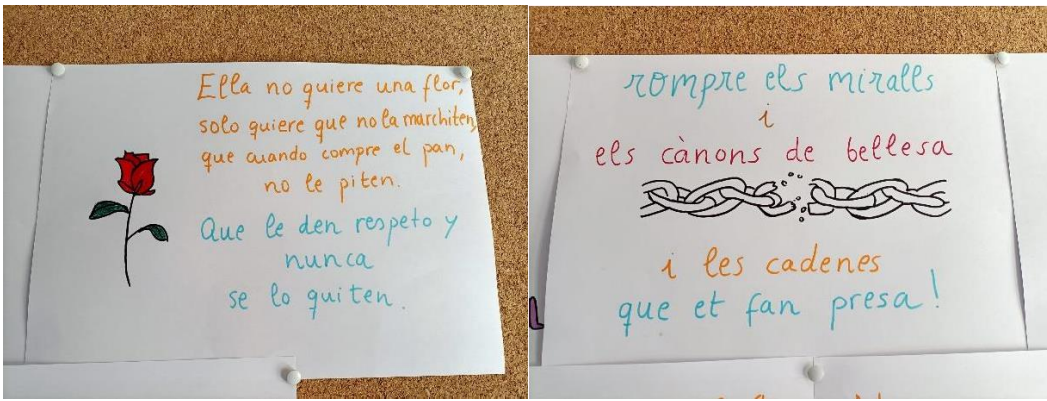 Ella no quiere una flor,
solo quiere que no la marchiten,
que cuando compre el pan,
no le piten.
Que le den respeto y
nunca
se lo quiten.
rompre els miralls
i
els cànons de bellesa
i les cadenes
que et fan presa!